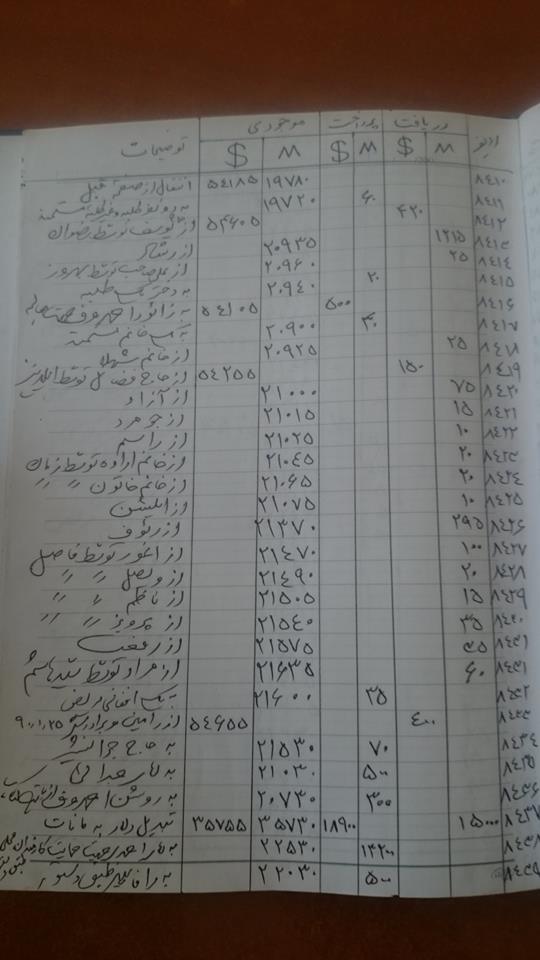 ردیف دریافت پرداخت موجودی توضیحات
M $ M $ M $
۸۴۱۰ ۱۹۷۸۰ ۵۴۱۸۵ انتقال از صفحه قبل
۸۴۱۱ ۶۰ ۱۹۷۲۰
۸۴۱۲ ۴۲۰ ۵۴۶۰۵ از یوسف توسط رضوان
۸۴۱۳ ۱۲۱۵ ۲۰۹۳۵ از رشاد
۸۴۱۴ ۲۵ ۲۰۹۶۰ از توسط بهروز
۸۴۱۵ ۲۰ ۲۰۹۴۰ به دختر یک طلبه
۸۴۱۶ ۵۰۰ ۵۴۱۰۵
۸۴۱۷ ۴۰ ۲۰۹۰۰ به یک خانم مستمند
۸۴۱۸ ۲۵ ۲۰۹۲۵ از خانم شهلا
۸۴۱۹ ۱۵۰ ۵۴۲۵۵ از حاج توسط
۸۴۲۰ ۷۵ ۲۱۰۰۰ از آزاد
۸۴۲۱ ۱۵ ۲۱۰۱۵ از جومرد
۸۴۲۲ ۱۰ ۲۱۰۲۵ از راسم
۸۴۲۳ ۲۰ ۲۱۰۴۵ از خانم اراده توسط نریمان
۸۴۲۴ ۲۰ ۲۱۰۶۵ از خانم خاتون 〃 〃
۸۴۲۵ ۱۰ ۲۱۰۷۵ از ائلشن
۸۴۲۶ ۲۹۵ ۲۱۳۷۰ از رئوف
۸۴۲۷ ۱۰۰ ۲۱۴۷۰ از توسط فاضل
۸۴۲۸ ۲۰ ۲۱۴۹۰ از وصل 〃 〃
۸۴۲۹ ۱۵ ۲۱۵۰۵ از ناظم 〃 〃
۸۴۳۰ ۳۵ ۲۱۵۴۰ از پرویز 〃 〃
۸۴۳۱ ۳۵ ۲۱۵۷۵ از رفعت
۸۴۳۱ ۶۰ ۲۱۶۳۵ از مراد توسط سید هاشم
۸۴۳۲ ۳۵ ۲۱۶۰۰ به یک افغانی مریض
۸۴۳۳ ۴۰۰ ۵۴۶۵۵ از رامین و برادرش
۸۴۳۴ ۷۰ ۲۱۵۳۰ به حاج
۸۴۳۵ ۵۰۰ ۲۱۰۳۰
۸۴۳۶ ۳۰۰ ۲۰۷۳۰ به روشن
۸۴۳۷ ۱۵۰۰۰ ۱۸۹۰۰ ۳۵۷۳۰ ۳۵۷۵۵ تبدیل دلار به مانات
۸۴۳۸ ۱۳۲۰۰ ۲۲۵۳۰
۸۴۳۹ ۵۰۰ ۲۲۰۳۰ طبق دستور